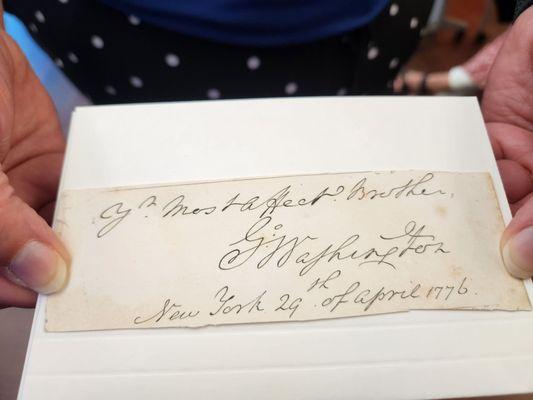 Yr. Most Affect. Brother,
Go: Washington
New York 29th of April 1776.